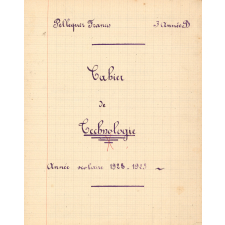 Pelleguer Francis 3 Année D
Cahier
de
Technologie
Année scolaire 1928-1929